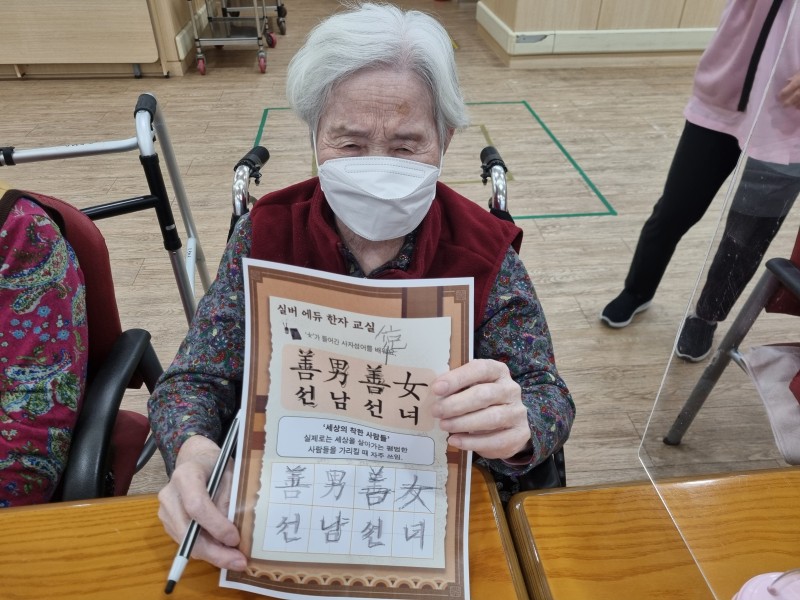 실버 에듀 한자 교실
'女'가 들어간 사자성어를 배워
善男善女
선남선녀
'세상의 착한 사람들'
실제로는 세상을 살아가는 평범한
사람들을 가리킬 때 자주 쓰임.
善男善女
선남선녀